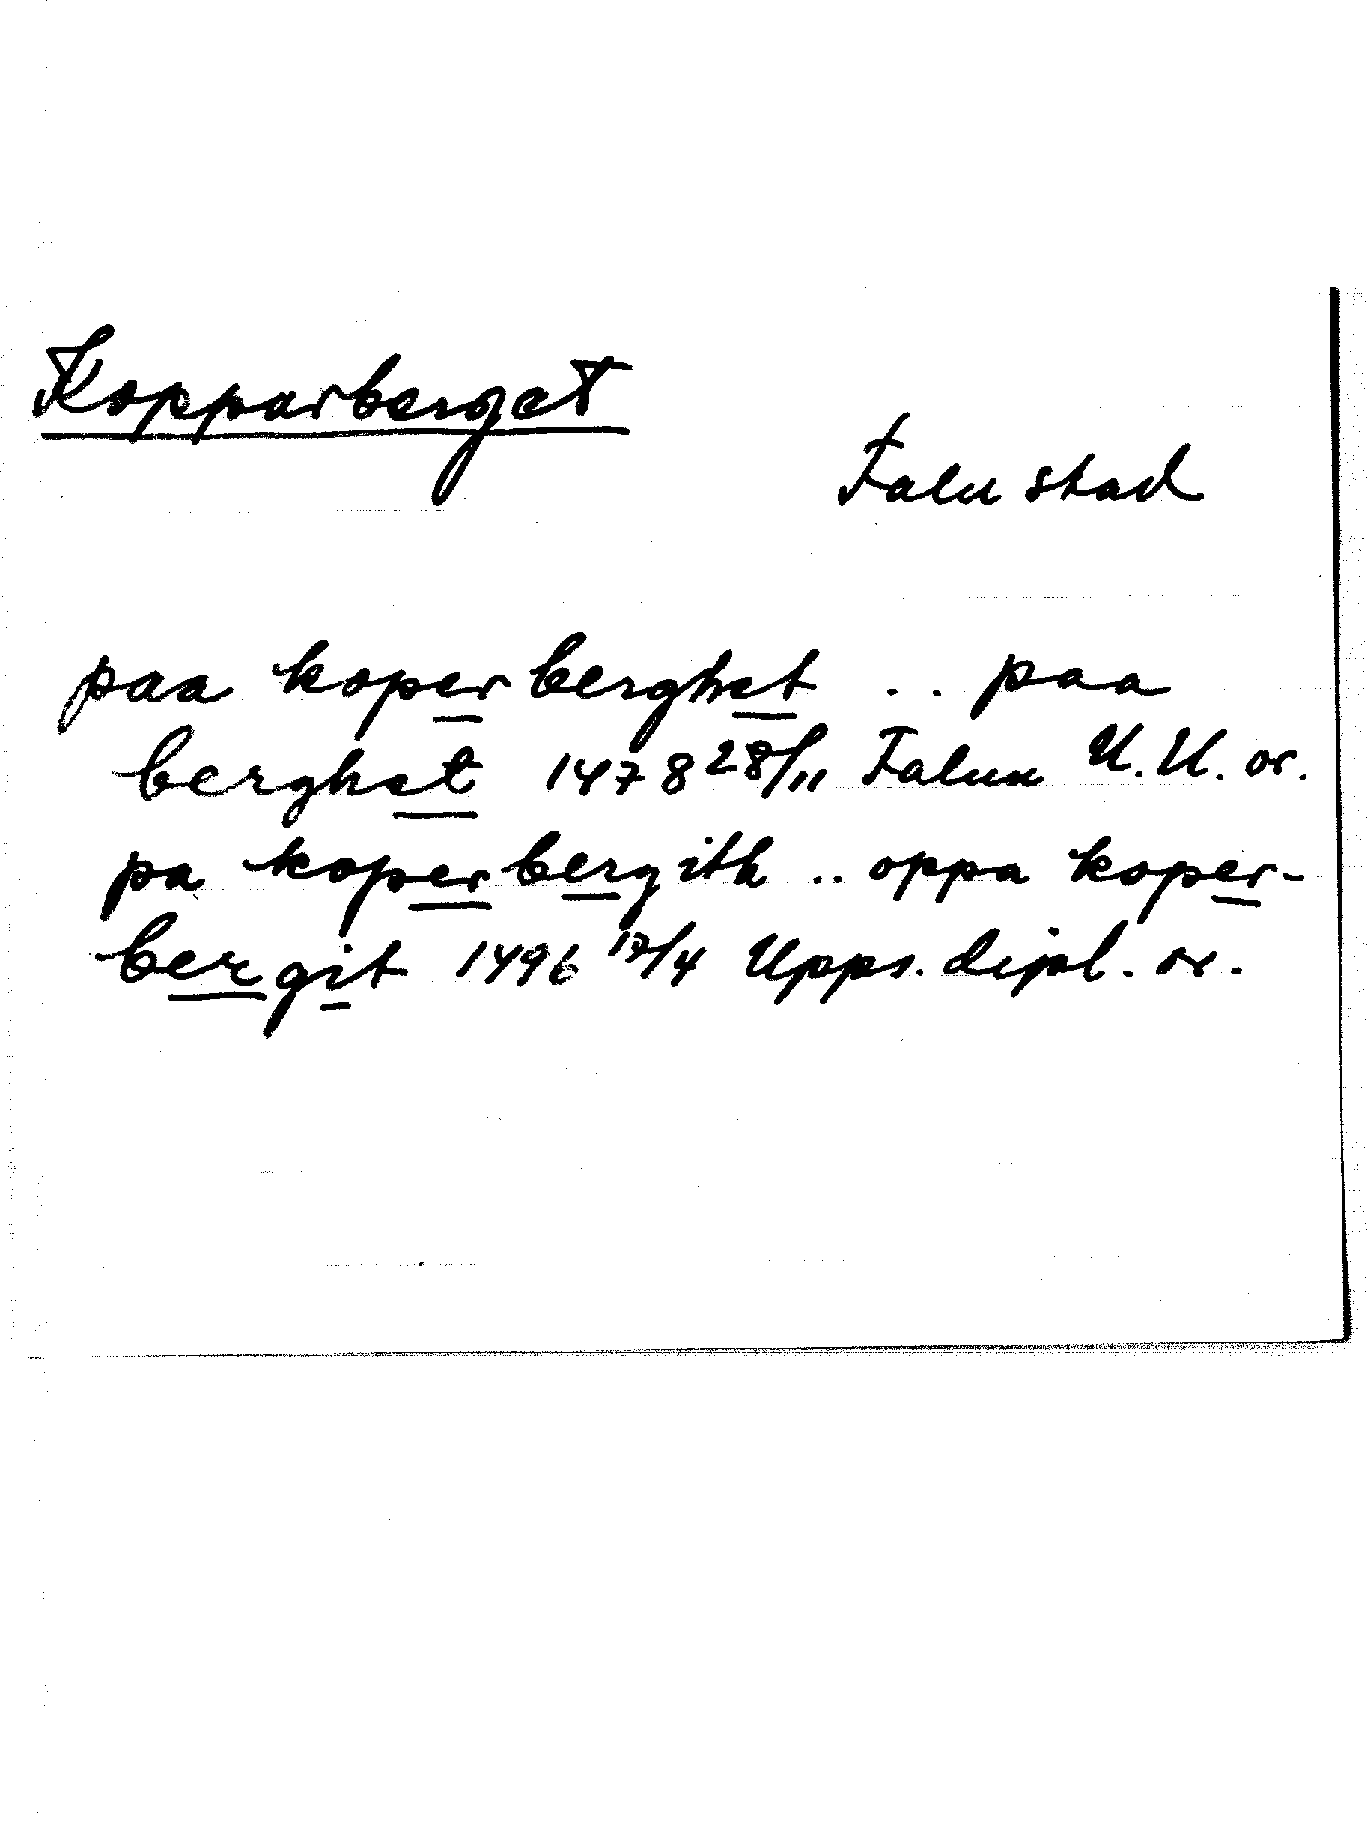 Kopparberget
Falu stad
paa koper berghet .. paa
berghet 1478 28/11 Falun U.U. or.
pa koperbergith .. oppa koper-
bergit 1496 17/4 Upps. dipl. or.